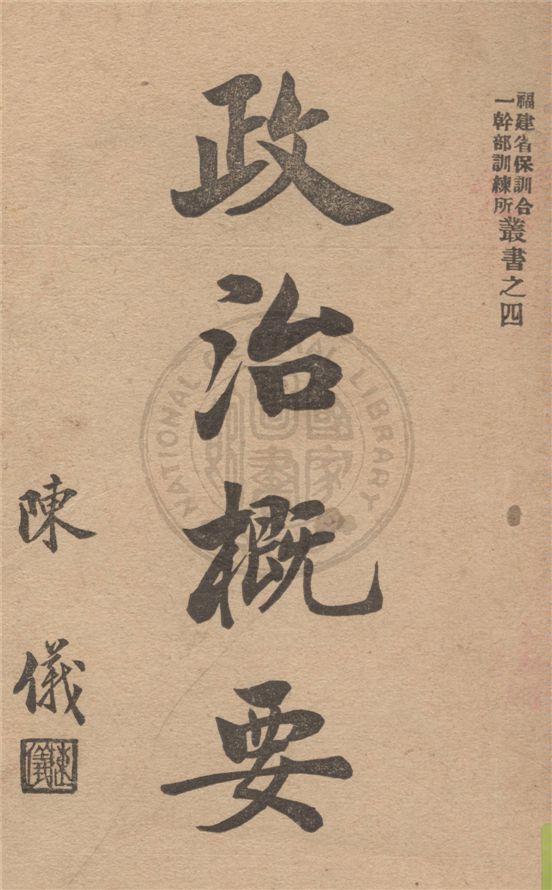 福建省保訓合
一幹部訓練所
叢書之四
政治概要
陳儀
陳儀
NATIONAL CENTRAL LIBRARY
國家圖書館